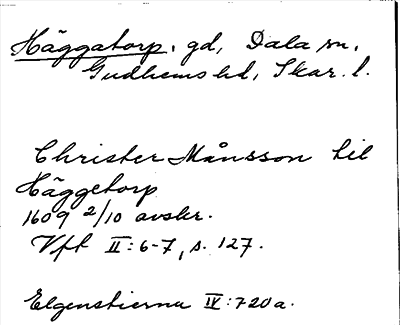 Häggatorp. gd, Dala sn.
Gudhems hd, Skar. l.
Christer Månsson til
Häggetorp
1609 2/10 avskr.
Vft II:6-7, s. 127.
Elgenstierna IV:720a.